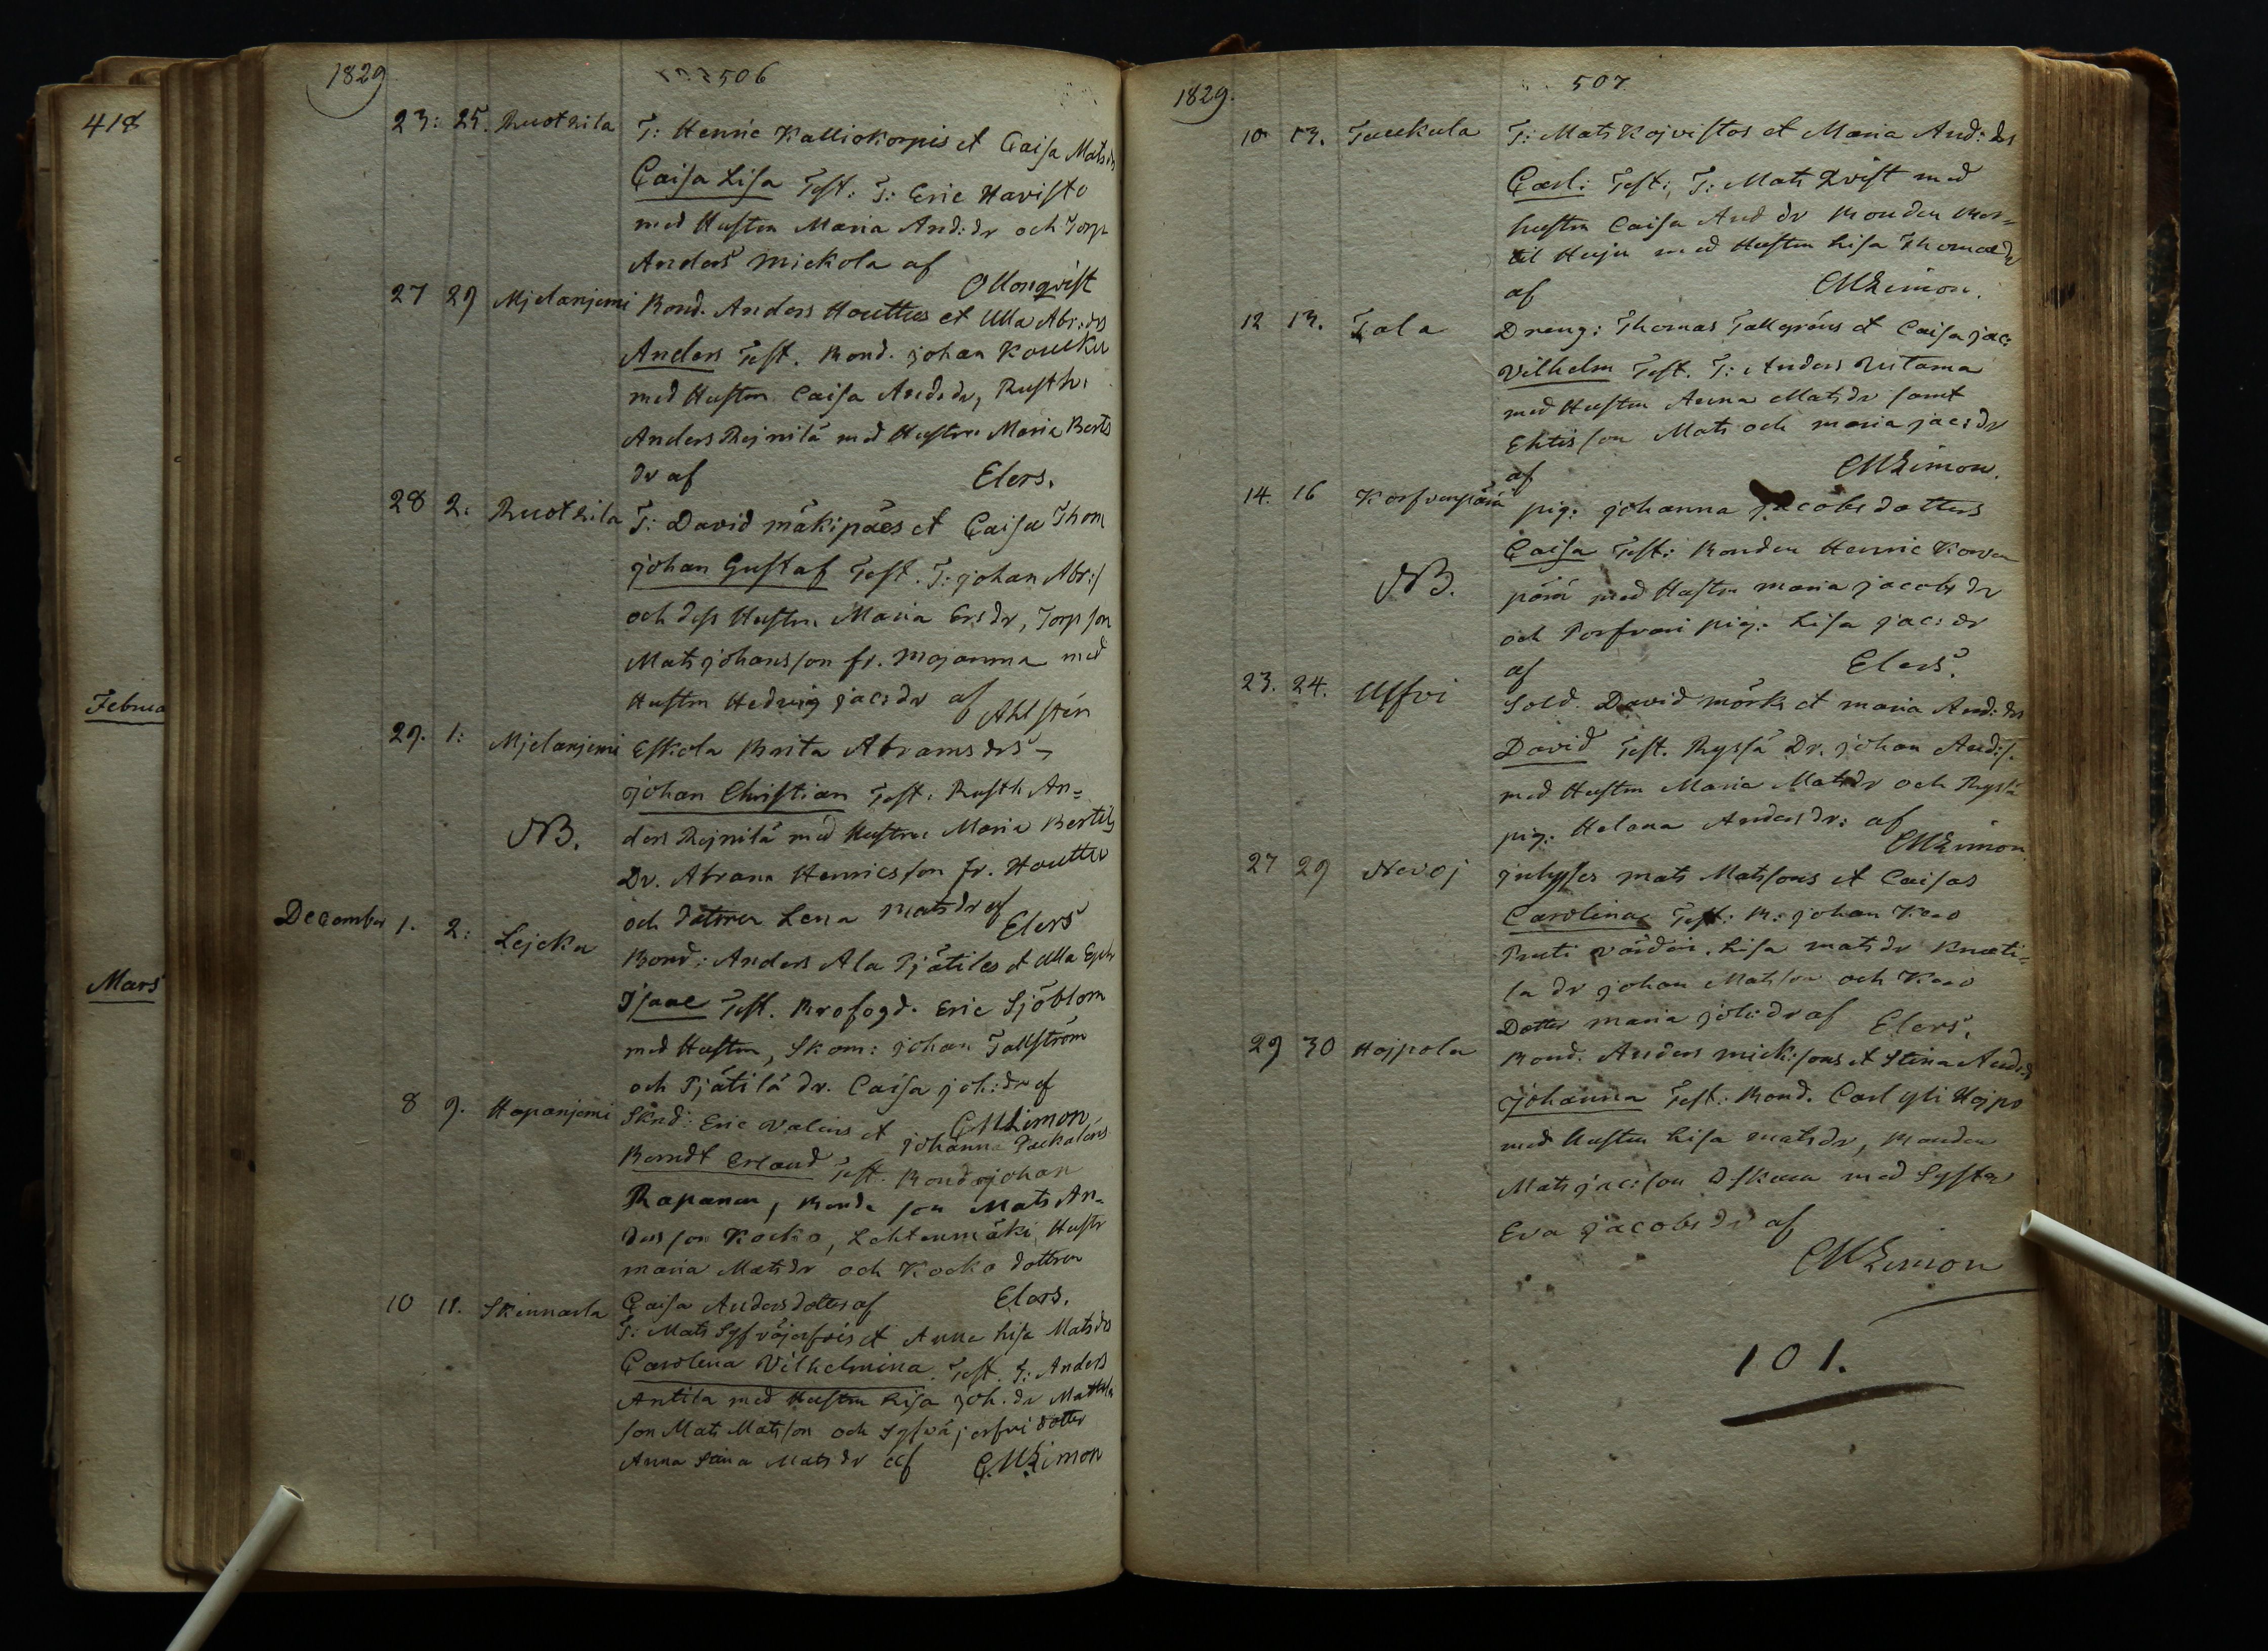 418
Februa
Mars
1829
506
23: 25. Ruotsila T: Henric Kalliokorpis et Caisa Mats drs
Caisa Lisa Test: T: Eric Havisto
med Hustrun Maria And: dr och Torp
Anders Mickola af
Monqvist
27 29 Mjelanjemi Bond. Anders Houttus et Ulla Abr: drs
Anders Test. Bond. Johan Koucku
med Hustrun Caisa And: dr, Rusth:
Anders Rejnilä med Hustrun Maria Bertils
dr af Elers.
28 2: Ruotsila T: David Mäkipäes et Caisa Thom
Johan Gustaf Test. T: Johan Abr: s
och dess Hustru Maria Ers dr, Torp son
Mats Johansson fr. Mojanma med
Hustrun Hedvig Jac: dr af Ahlstén
29. 1: Mjelanjemi Eskola Brita Abrams drs
Johan Christian Test: Rusth An=
NB. ders Rejnilä med Hustrun Maria Bertils
Dr. Abram Henricsson fr. Houttu
och dottren Lena Mats dr af Elers
December 1. 2: Lejcku Bond: Anders Ala Pjätiles et Ulla
Isaac Test. Brofogd. Eric Sjöblom
med Hustrun, Skom: Johan Tallström
och Pjätilä dr. Caisa Joh: dr af
CMLimon
8 9. Hapanjemi Sknd: Eric Valens et Johanna
Berndt Erland Test. Bond Johan
Rapanan, Bonde son Mats An=
ders son Kocko, Lehtenmäki Hustr
Maria Mats dr och Kocko dottren
Caisa Anders dotter af Elers.
10 11. Skinnarla T: Mats Syfväjerfvis et Anna Lisa Mats drs
Carolina Vilhelmina. Test. T: Anders
Antila med Hustrun Lisa Joh. dr Mattila
son Mats Matsson och Syfväjerfvi dotter
Anna Mats dr af CMLimon
1829.
507
10. 13. Tuckula T: Mats Kojvistos et Maria And: drs
Carl: Test: T: Mats Qvist med
hustru Caisa And dr Bonden Mar=
til Huju med Hustrun Lisa Thomæ dr
af CMLimon.
12 13. Tala Dreng: Thomas Tallgréns et Caisa Jac:
Vilhelm Test. T: Anders Ritama
med Hustrun Anna Mats dr samt
Ehtis son Mats och Maria Jac: dr
af CMLimon.
14. 16 Korfvenpää pig: Johanna Jacobs dotters
Caisa Test: Bonden Henric Korven
NB. pää med Hustru Maria Jacobs dr
och Porfvari pig: Lisa Jac: dr
af Elers.
23. 24. Ulfvi Sold. David Mörks et Maria And: drs
David Test. Ryssä Dr. Johan And: s.
med Hustrun Maria Mats dr och Ryssä
pig. Helena Anders dr: af
CMLimon
27 29 Nevoj Inhyses Mats Matssons et Caisas
Carolina Test: B: Johan Kero
Lisa Mats dr Knuti=
la dr Johan Matsson och Kero
Dotter Maria Joh: dr af Elers.
29 30 Hojpola Bond. Anders Mick: sons et Stina And: drs
Johanna Test: Bond. Carl Yli Hojpo
med hustrun Lisa Mats dr, Bonden
Mats Jac: son med Syster
Eva Jacobs dr af
CMLimon
101.